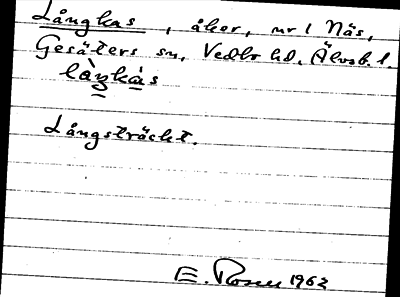 Långkas, åker, nr 1 Näs,
Gesäters sn, Vedbo hd, Älvsb. l.
làŋkàs
Långsträckt.
E. Rosen 1962